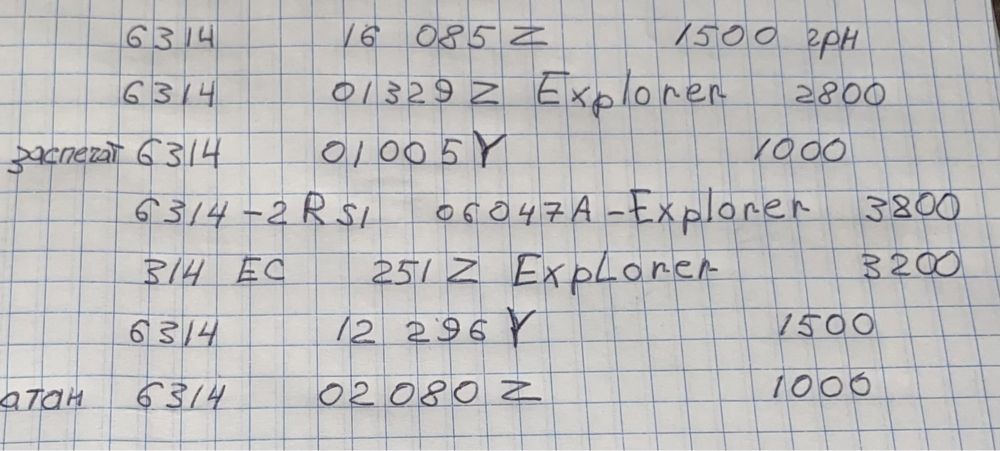 6314 16 085 Z 1500 грн
6314 01329 Z Explorer 2800
распечат 6314 01005 Y 1000
6314-2RS1 06047A-Explorer 3800
314 EC 251 Z Explorer 3200
6314 12 296 Y 1500
6314 02 080 Z 1000